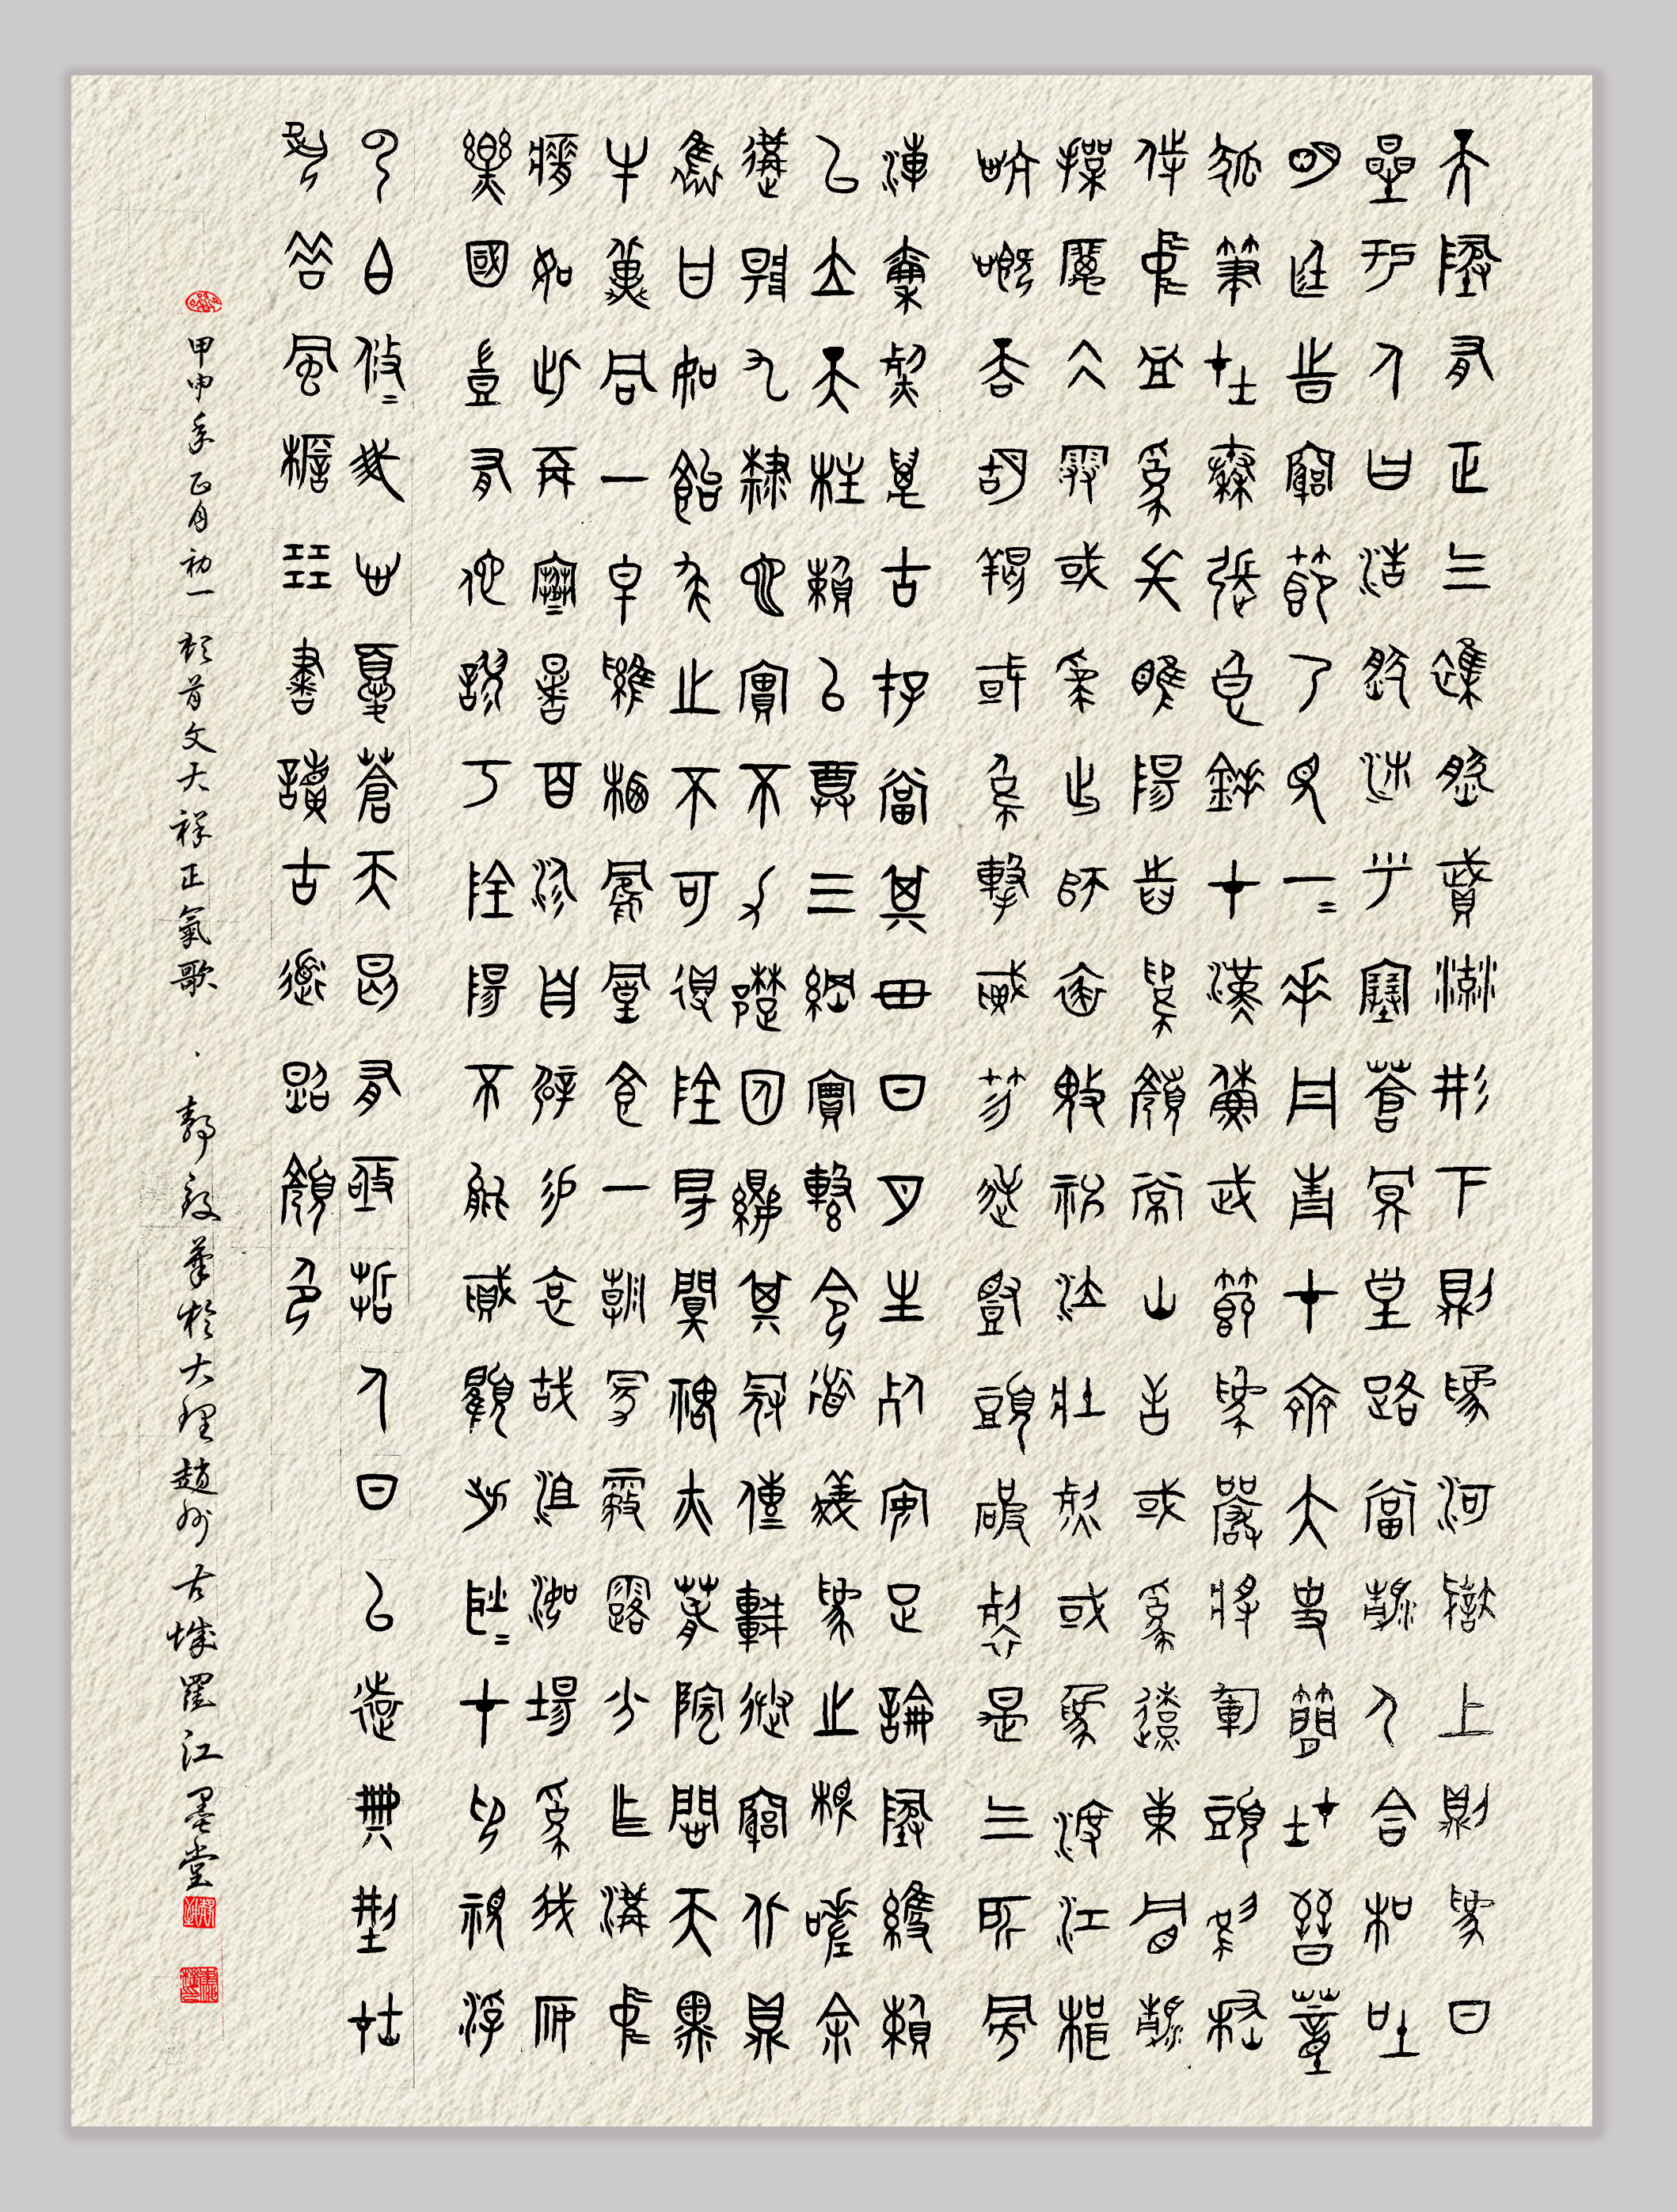 天地有正氣雜然賦流形下則為河嶽上則為日
星於人曰浩然沛乎塞蒼冥皇路當清夷含和吐
明庭時窮節乃見一一垂丹青在齊太史簡在晉董
狐筆在秦張良椎在漢蘇武節為嚴將軍頭為嵇
侍中血為張睢陽齒為顏常山舌或為遼東帽清
操厲冰雪或為出師表鬼神泣壯烈或為渡江楫
慷慨吞胡羯或為擊賊笏逆豎頭破裂是氣所磅
薄凜烈萬古存當其貫日月生死安足論地維賴
以立天柱賴以尊三綱實繫命道義為之根嗟余
遘陽九隸也實不力楚囚纓其冠傳車送窮北鼎
鑊甘如飴求之不可得陰房闃鬼火春院閟天黑
牛驥同一皂雞棲鳳凰食一朝蒙霧露分作溝中
瘠如此再寒暑百沴自辟易哀哉沮洳場為我安
樂國豈有他繆巧陰陽不能賊顧此耿耿在仰視浮
雲白悠悠我心憂蒼天曷有極哲人日以遠典型在
夙昔風檐展書讀古道照顏色
甲申年正月初一 文天祥正氣歌 · 靜筆於大理趙州古城羅江墨堂